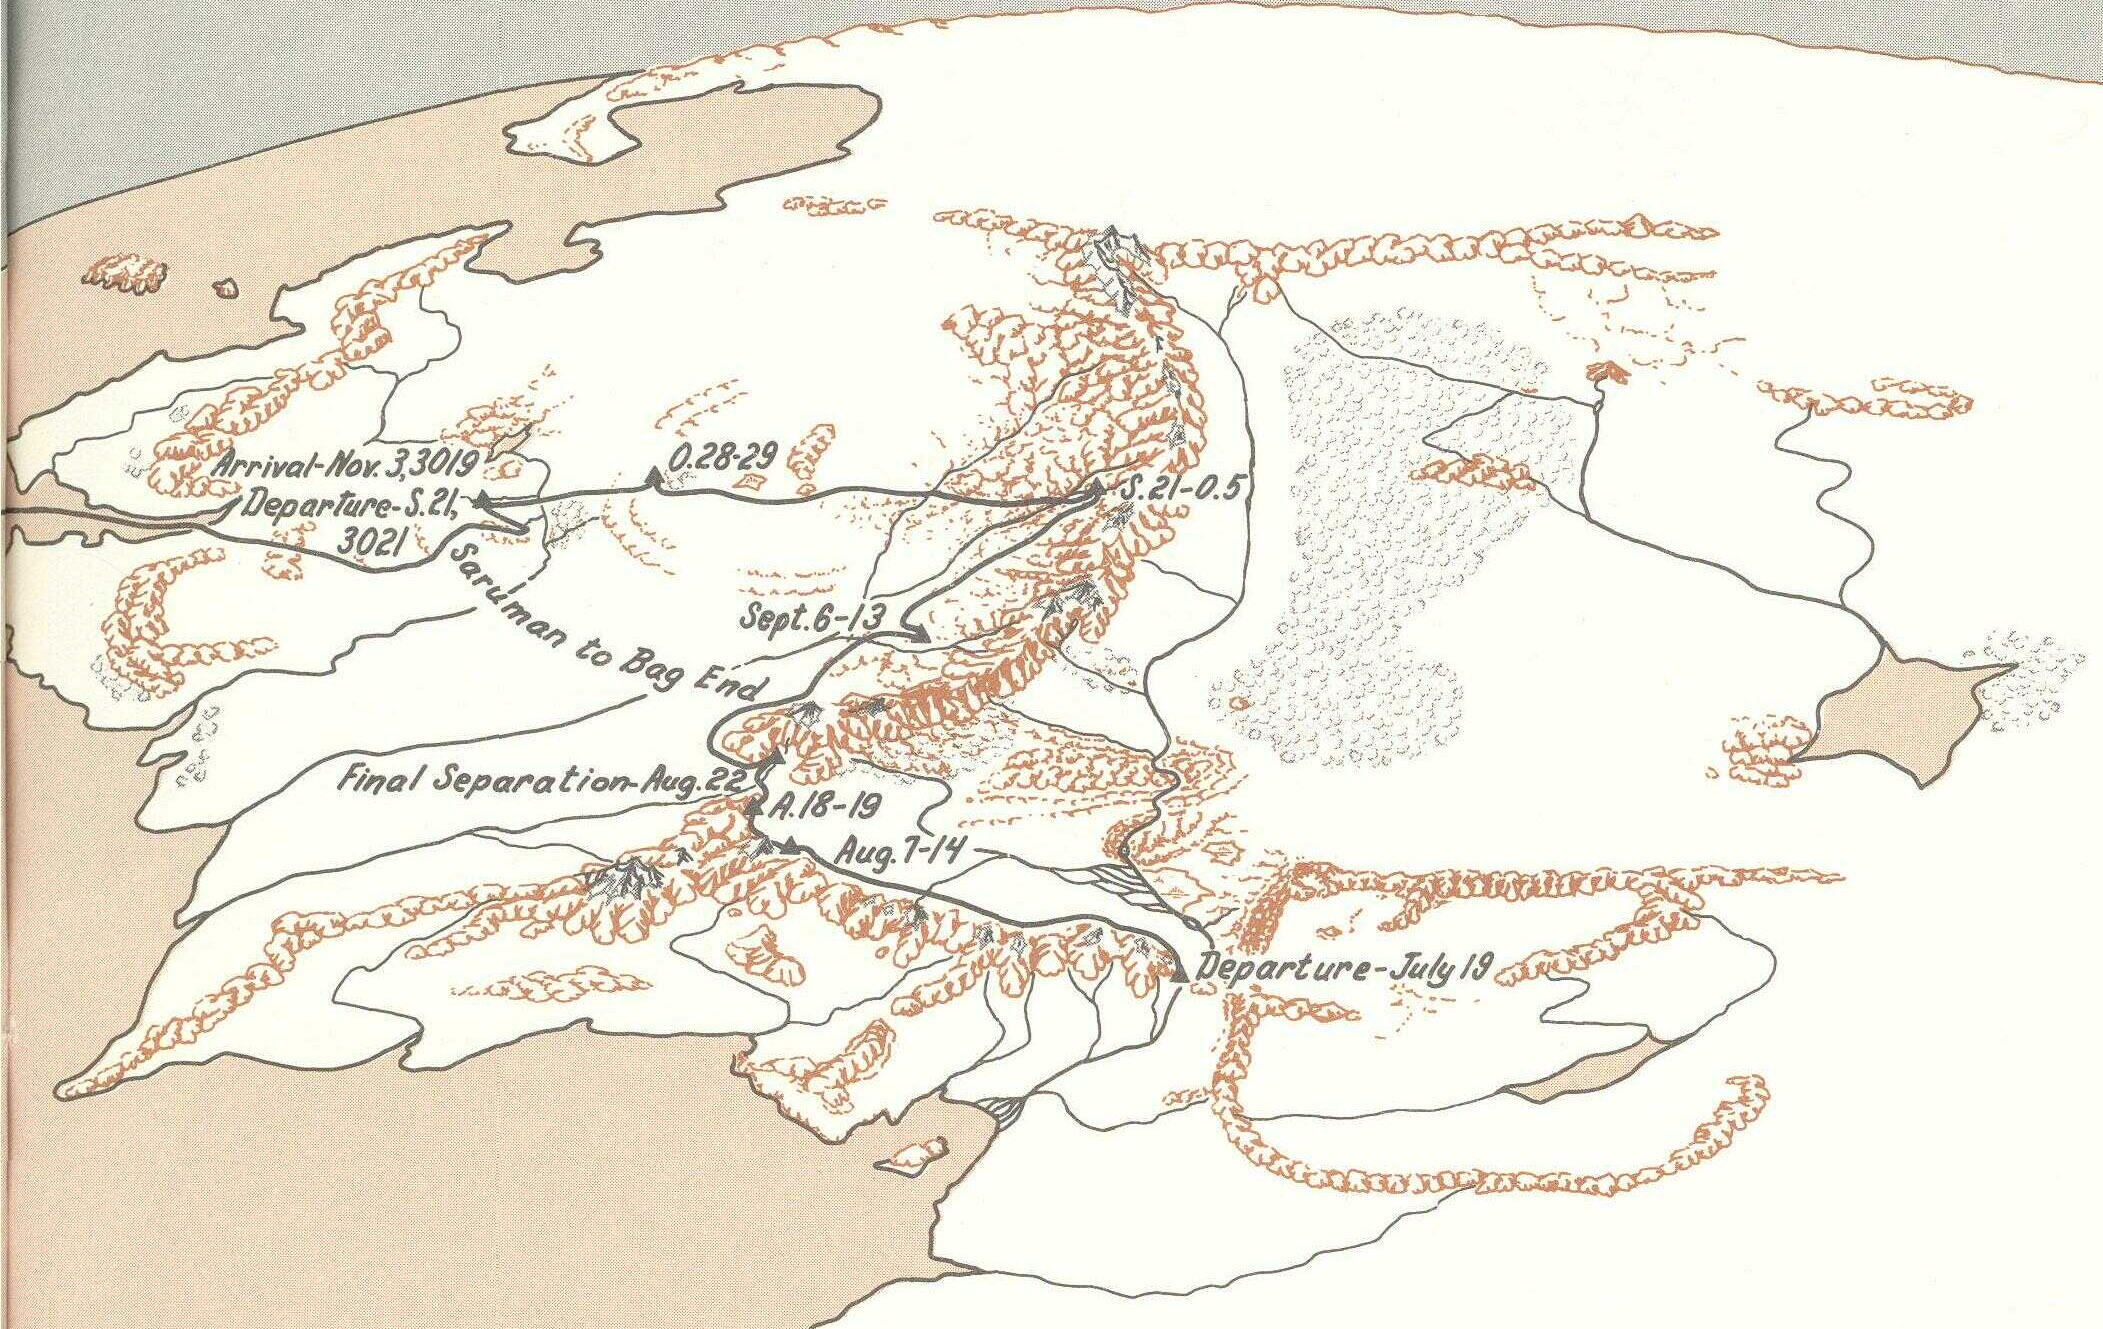 O.28-29
Arrival-Nov. 3, 3019
S.21-O.5
Departure-S.21,
3021
Saruman to Bag End
Sept. 6-13
Final Separation-Aug. 22
A.18-19
Aug. 7-14
Departure-July 19